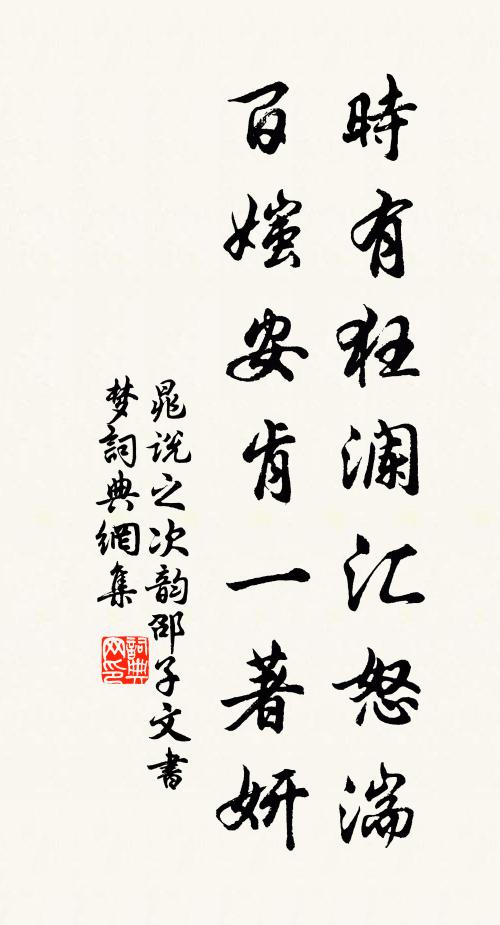 時有狂澜汇怒湍
百媸安肯一著妍
晁说之次韵邵子文書
梦詞典網集
詞典网印